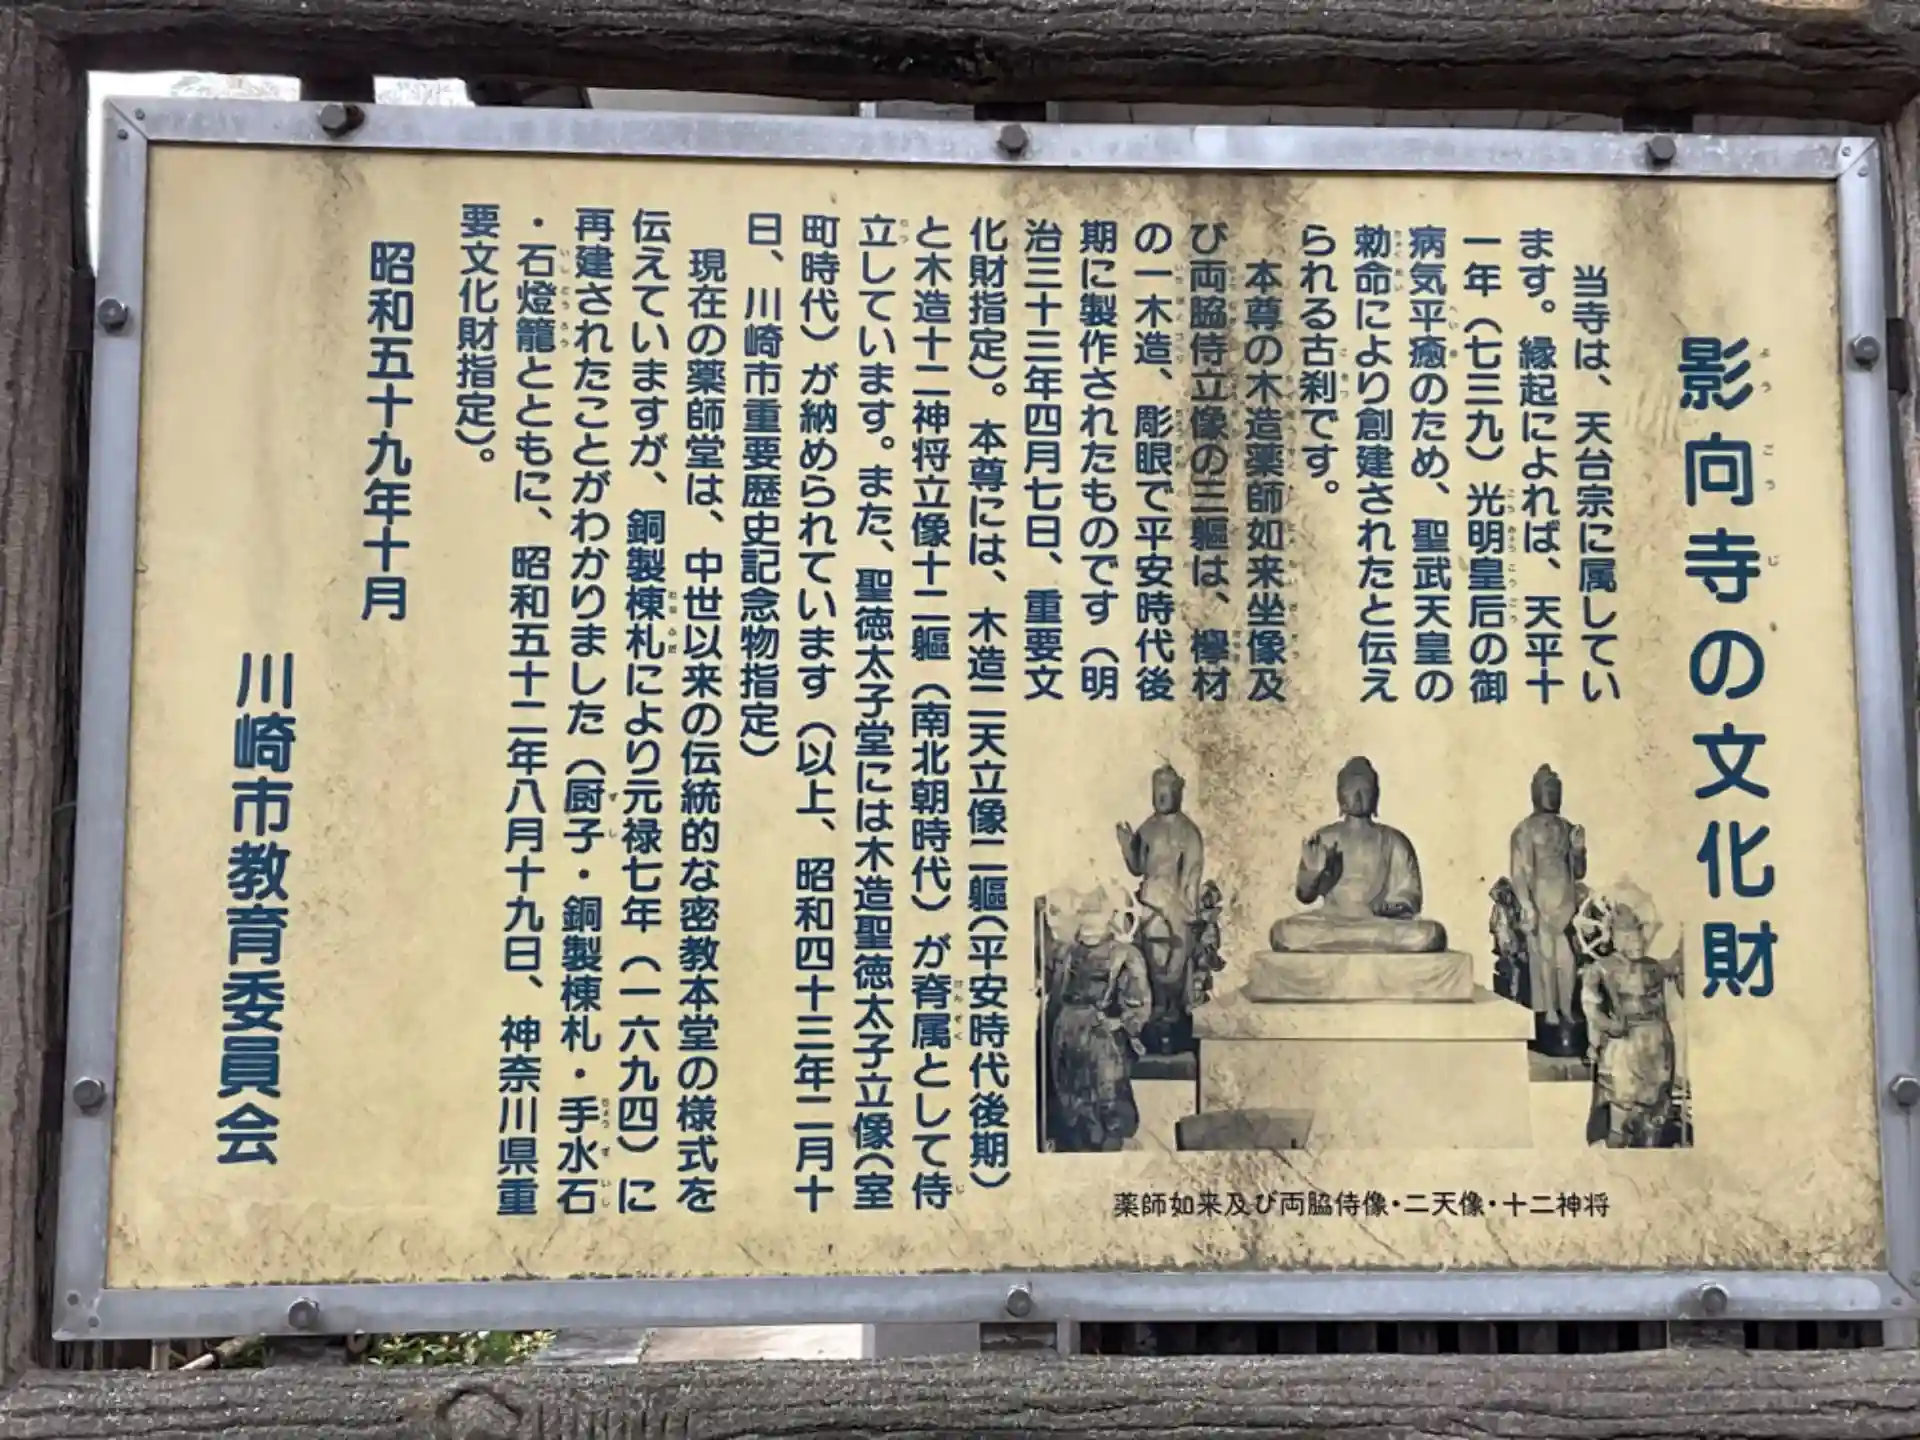 影向寺の文化財
当寺は、天台宗に属してい
ます。縁起によれば、天平十
一年（七三九）光明皇后の御
病気平癒のため、聖武天皇の
勅命により創建されたと伝え
られる古刹です。
本尊の木造薬師如来坐像及
び両脇侍立像の三軀は、欅材
の一木造、彫眼で平安時代後
期に製作されたものです（明
治三十三年四月七日、重要文
化財指定）。本尊には、木造二天立像二軀（平安時代後期）
と木造十二神将立像十二軀（南北朝時代）が脊属として侍
立しています。また、聖徳太子堂には木造聖徳太子立像（室
町時代）が納められています（以上、昭和四十三年二月十
日、川崎市重要歴史記念物指定）
現在の薬師堂は、中世以来の伝統的な密教本堂の様式を
伝えていますが、銅製棟札により元禄七年（一六九四）に
再建されたことがわかりました（厨子・銅製棟札・手水石
・石燈籠とともに、昭和五十二年八月十九日、神奈川県重
要文化財指定）。
昭和五十九年十月
川崎市教育委員会
薬師如来及び両脇侍像・二天像・十二神将